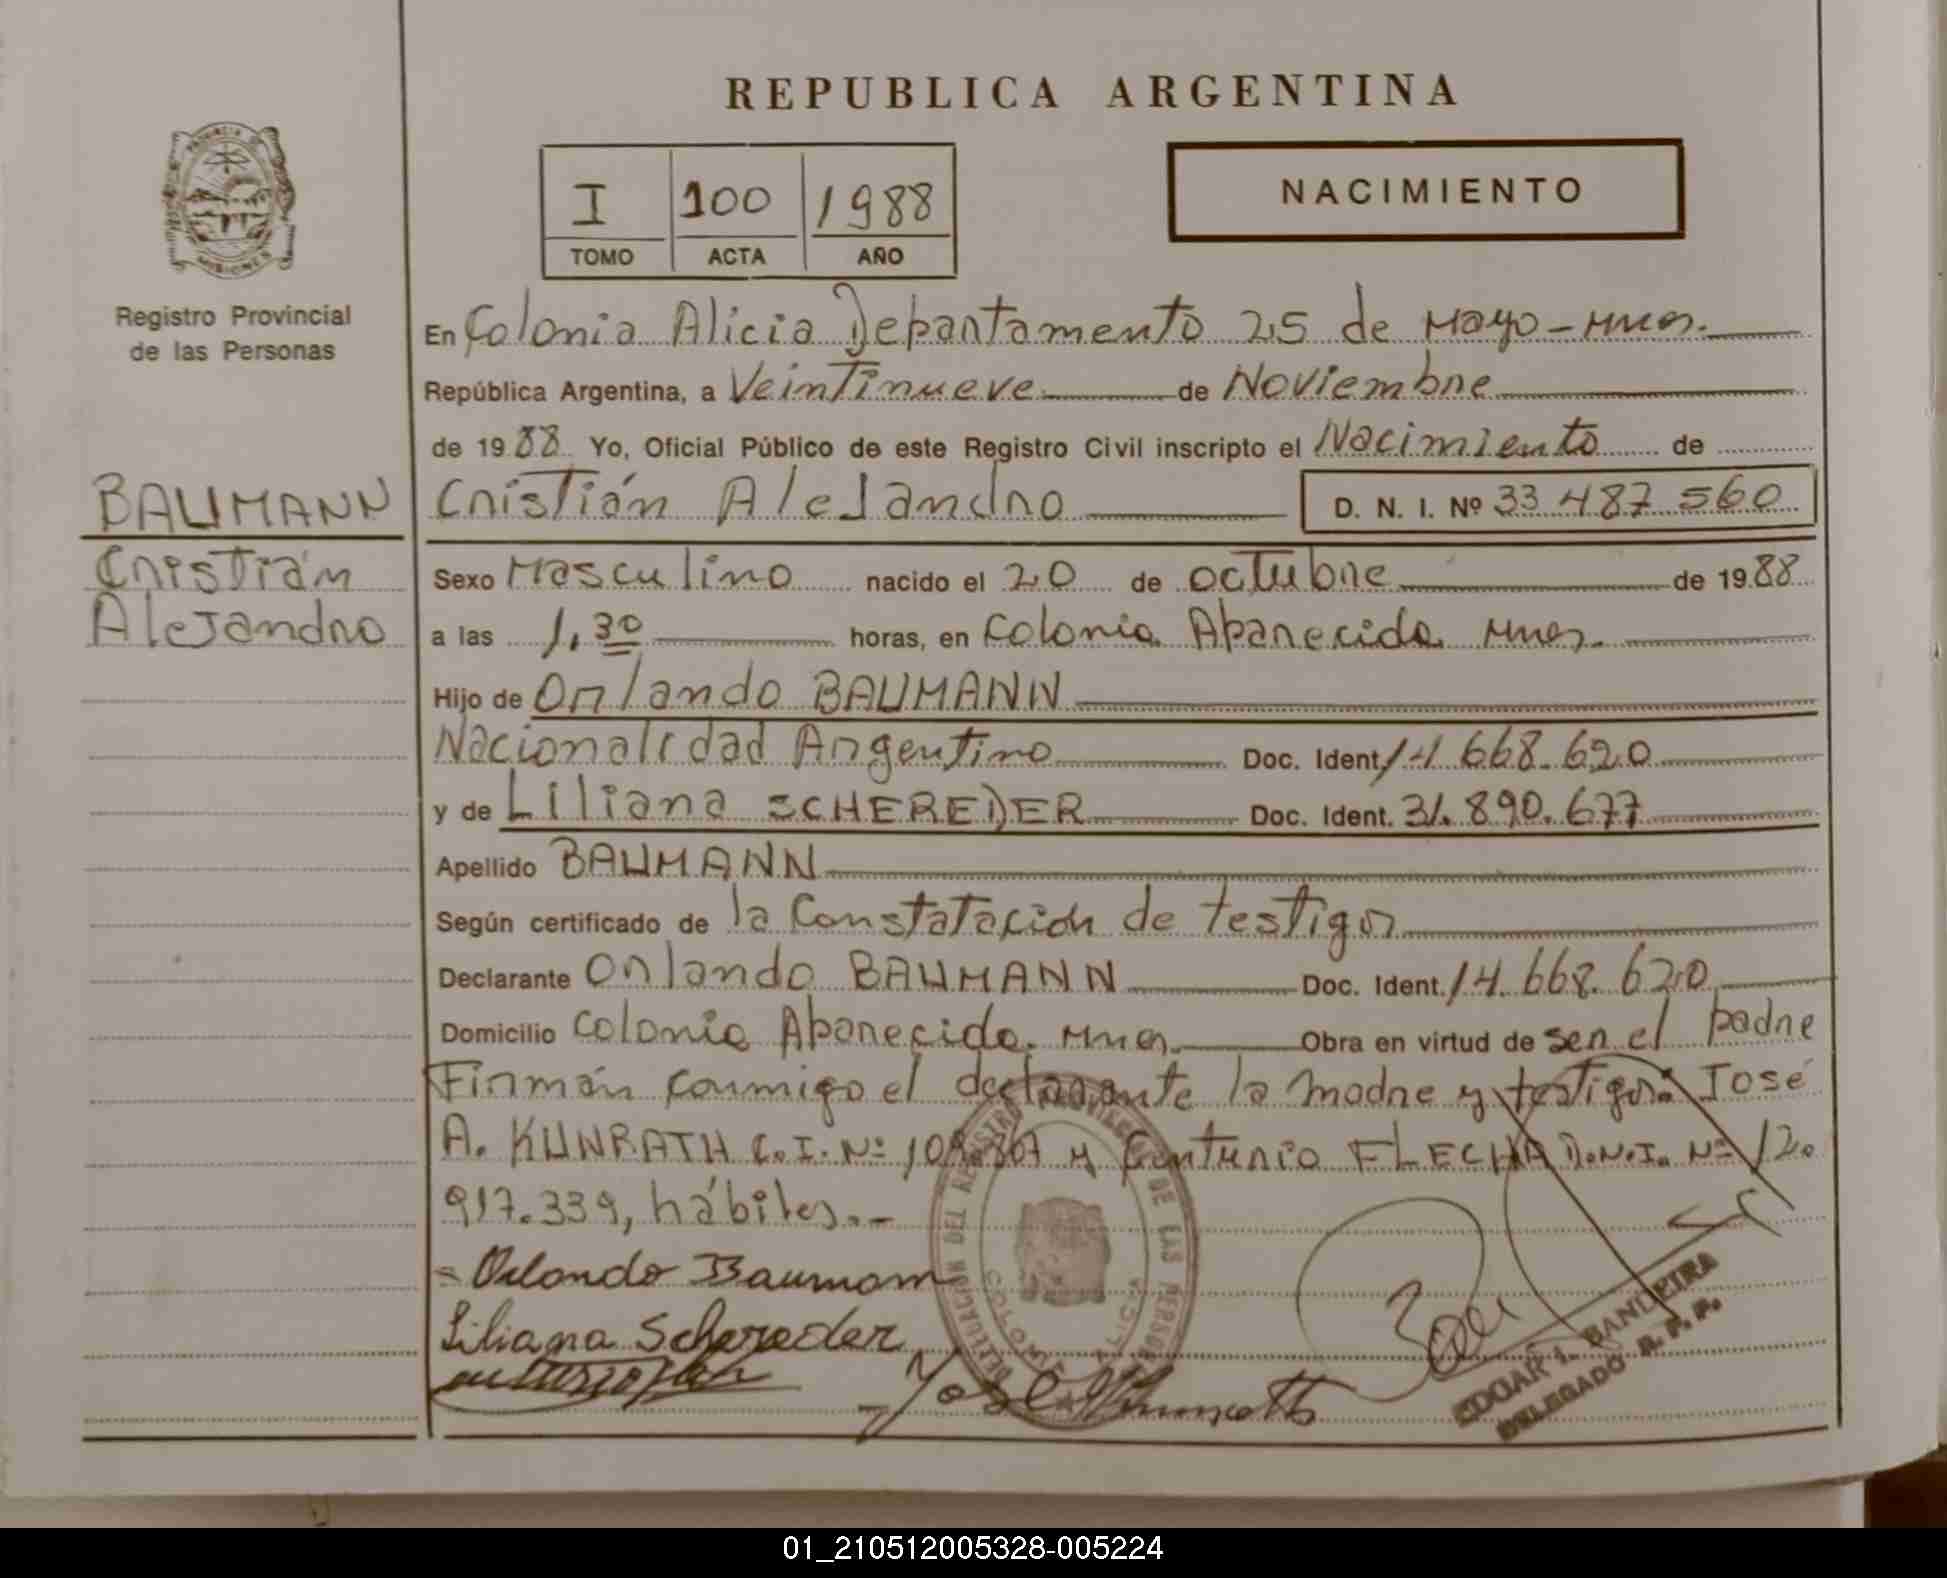 REPUBLICA ARGENTINA
I 100 1988
TOMO ACTA AÑO
NACIMIENTO
PROVINCIA DE MISIONES
Registro Provincial
de las Personas
BAUMANN
Cristián
Alejandro
En Colonia Alicia Departamento 25 de Mayo - Mnes.
República Argentina, a Veintinueve de Noviembre
de 1988 Yo, Oficial Público de este Registro Civil inscripto el Nacimiento de
Cristián Alejandro D. N. I. Nº 33.487.560
Sexo Masculino nacido el 20 de octubre de 1988
a las 1,30 horas, en Colonia Aparecida Mnes.
Hijo de Orlando BAUMANN
Nacionalidad Argentino Doc. Ident. 14.668.620
y de Liliana SCHEREDER Doc. Ident. 31.890.677
Apellido BAUMANN
Según certificado de la Constatación de testigos
Declarante Orlando BAUMANN Doc. Ident. 14.668.620
Domicilio Colonia Aparecida. Mnes. Obra en virtud de ser el padre
Firmán conmigo el declarante la madre y testigos: José
A. KUNRATH C.I. Nº y Centurio FLECHA D.N.I. Nº 12.
917.339, hábiles.-
Orlando Baumann
Liliana Schereder
DELEGACION DEL REGISTRO PROVINCIAL DE LAS PERSONAS
COLONIA ALICIA
EDGAR I. BANDEIRA
DELEGADO R. P. P.
01_210512005328-005224